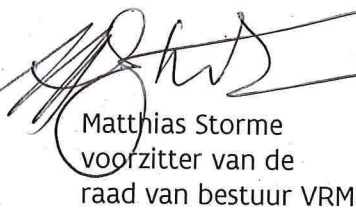 Matthias Storme
voorzitter van de
raad van bestuur VRM